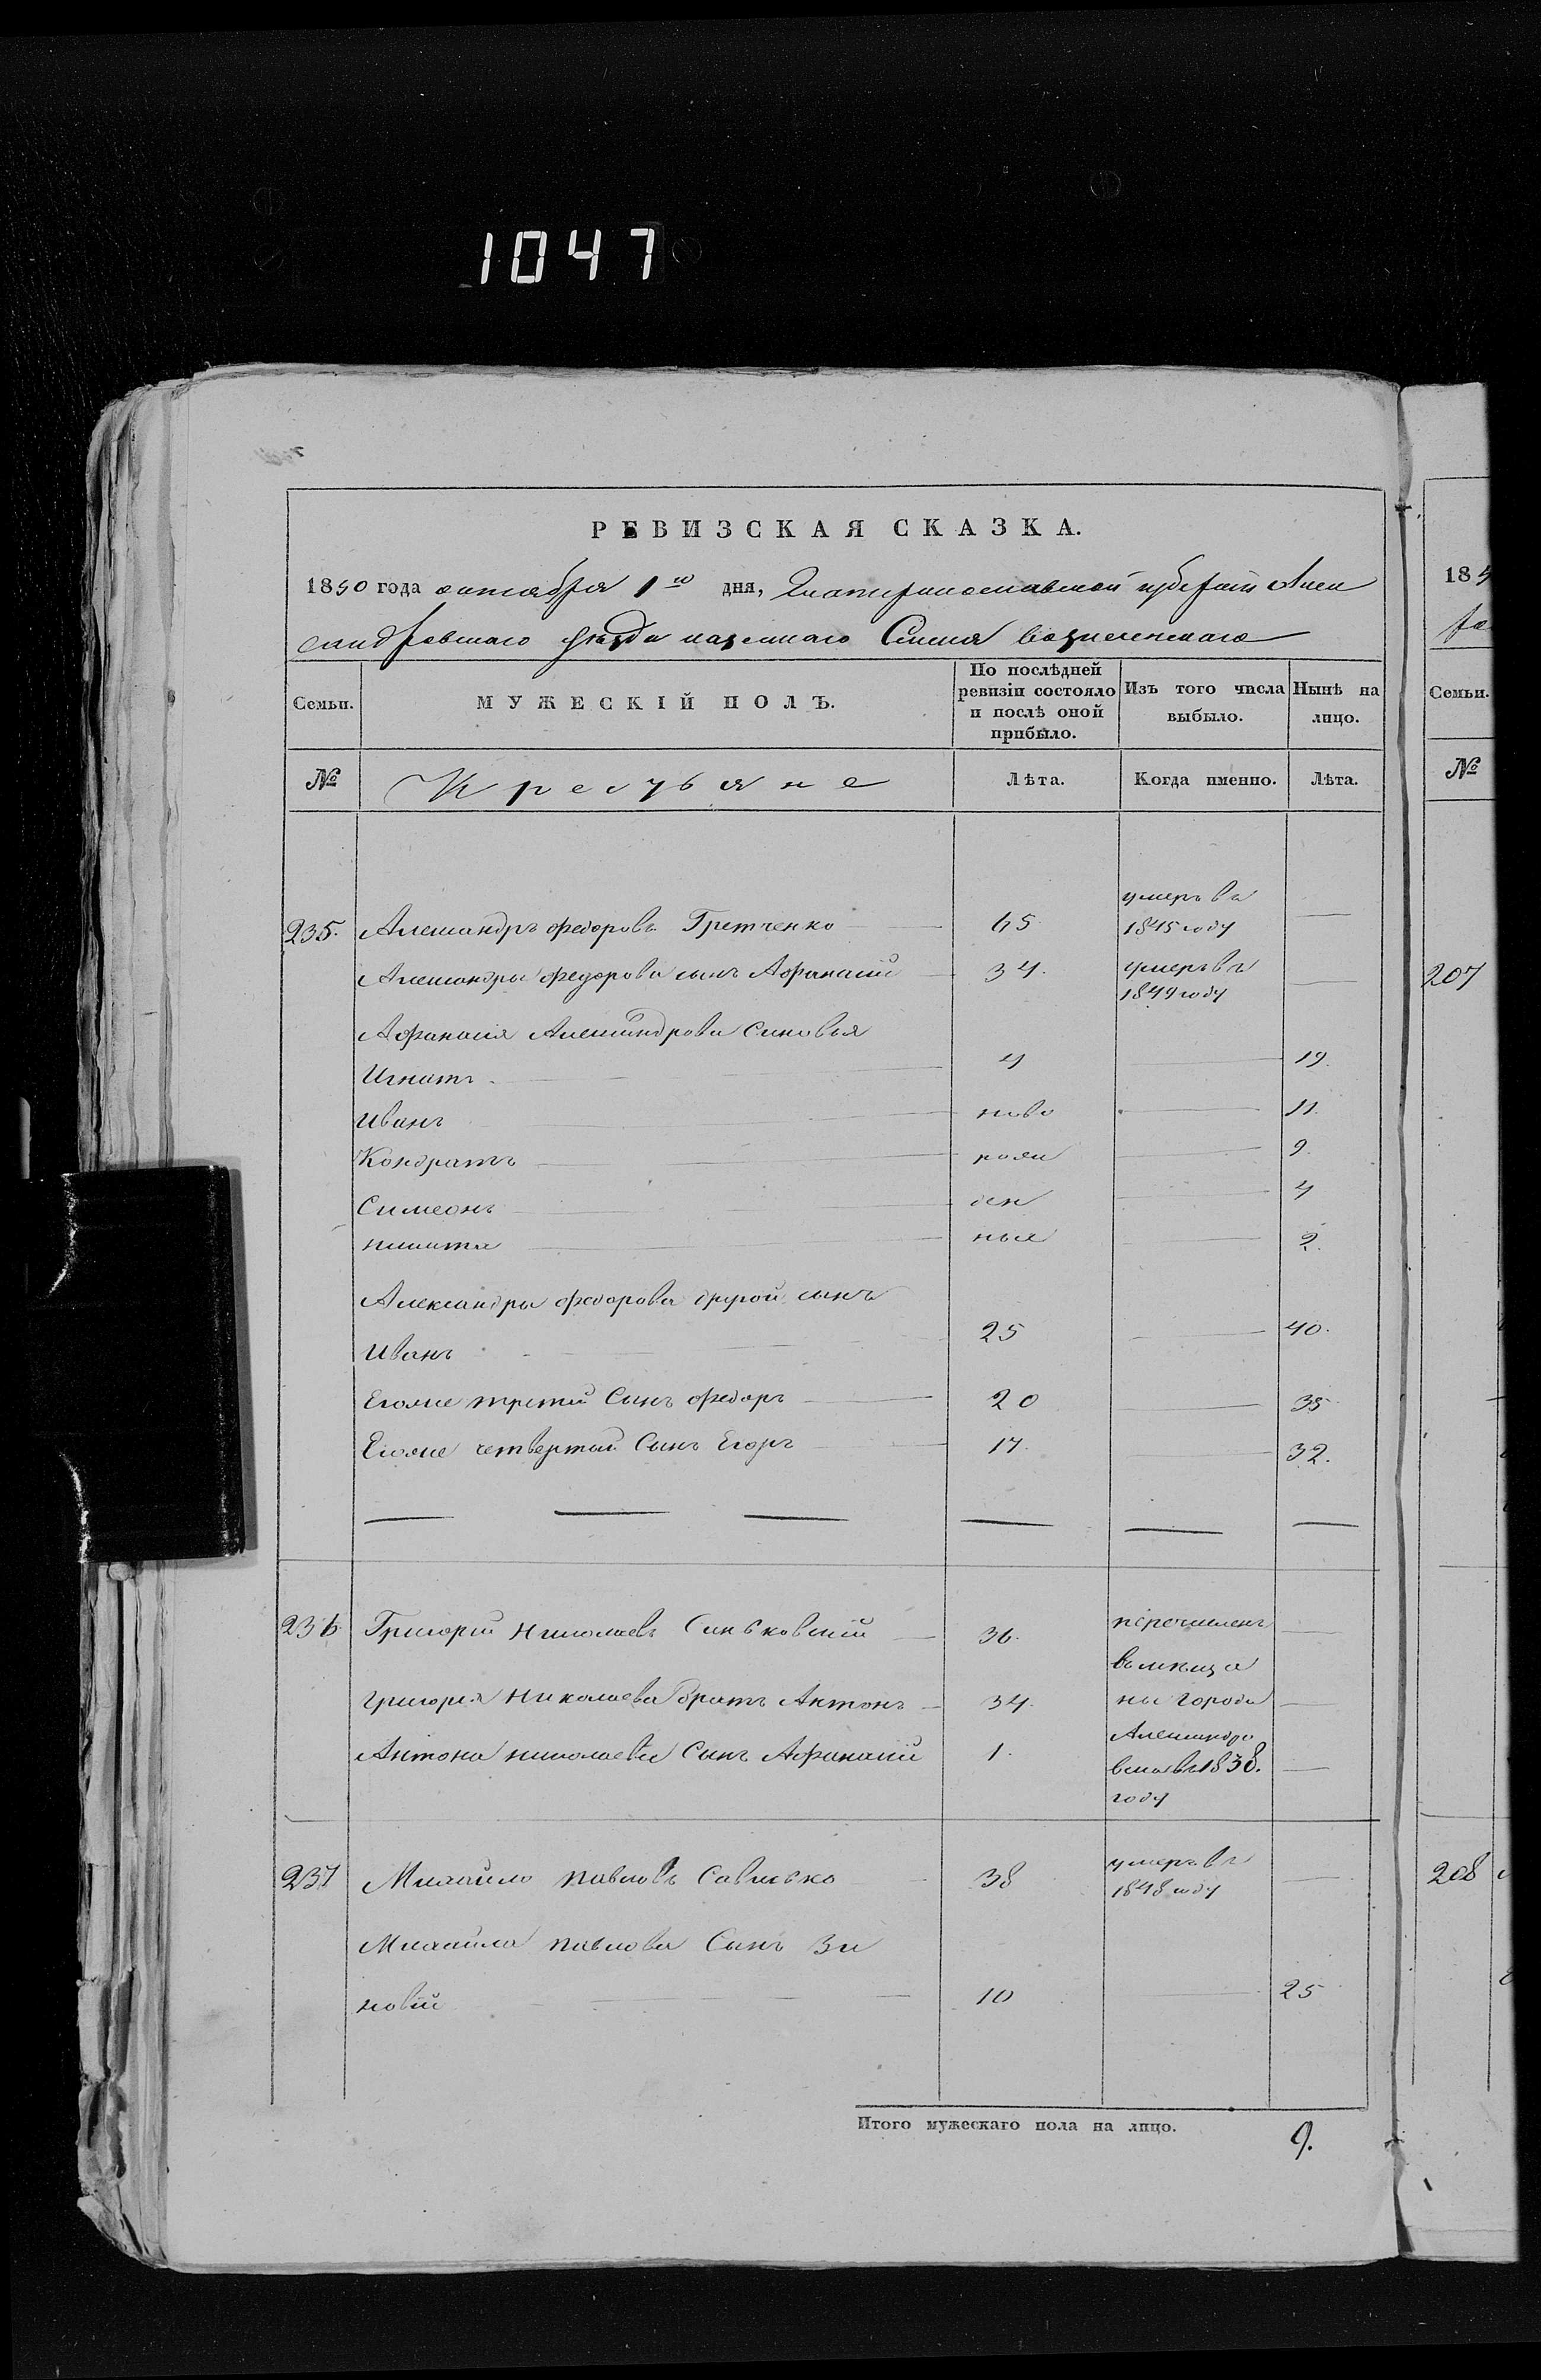 1047
РЕВИЗСКАЯ СКАЗКА.
1850 года октября 1го дня, Екатеринославской губернiи Алек
сандровскаго уѣзда казеннаго Селенiя Вознесенскаго
Семьи. МУЖЕСКІЙ ПОЛЪ. По послѣдней ревизіи состояло и послѣ оной прибыло. Изъ того числа выбыло. Нынѣ на лицо.
№ Крестьяне Лѣта. Когда именно. Лѣта.
умеръ въ
235. Александръ Федоровъ Гретченко 65 1845 году
Александра Федорова сынъ Афанасiй 34. умеръ въ
1849 году
Афанасiя Александрова Сыновья
Игнатъ 4 19.
Иванъ ново 11.
Кондратъ рож 9.
Симеонъ ден 4
Никита ныя 2.
Александра Федорова другой сынъ
Иванъ 25 40.
Егоже третiй Сынъ Федоръ 20 35
Егоже четвертый Сынъ Егоръ 17. 32.
236 Григорiй Николаевъ Синьковскiй 36. перечисленъ
въ мѣща
Григорiя Николаева братъ Антонъ 34. не города
Александро
Антона Николаева Сынъ Афанасiй 1. вска въ 1838.
году
умеръ въ
237 Михайло Павловъ Сависько 38 1848 году
Михайла Павлова Сынъ Зи
новiй 10 25
Итого мужескаго пола на лицо. 9.
185
Семьи.
№
207
208